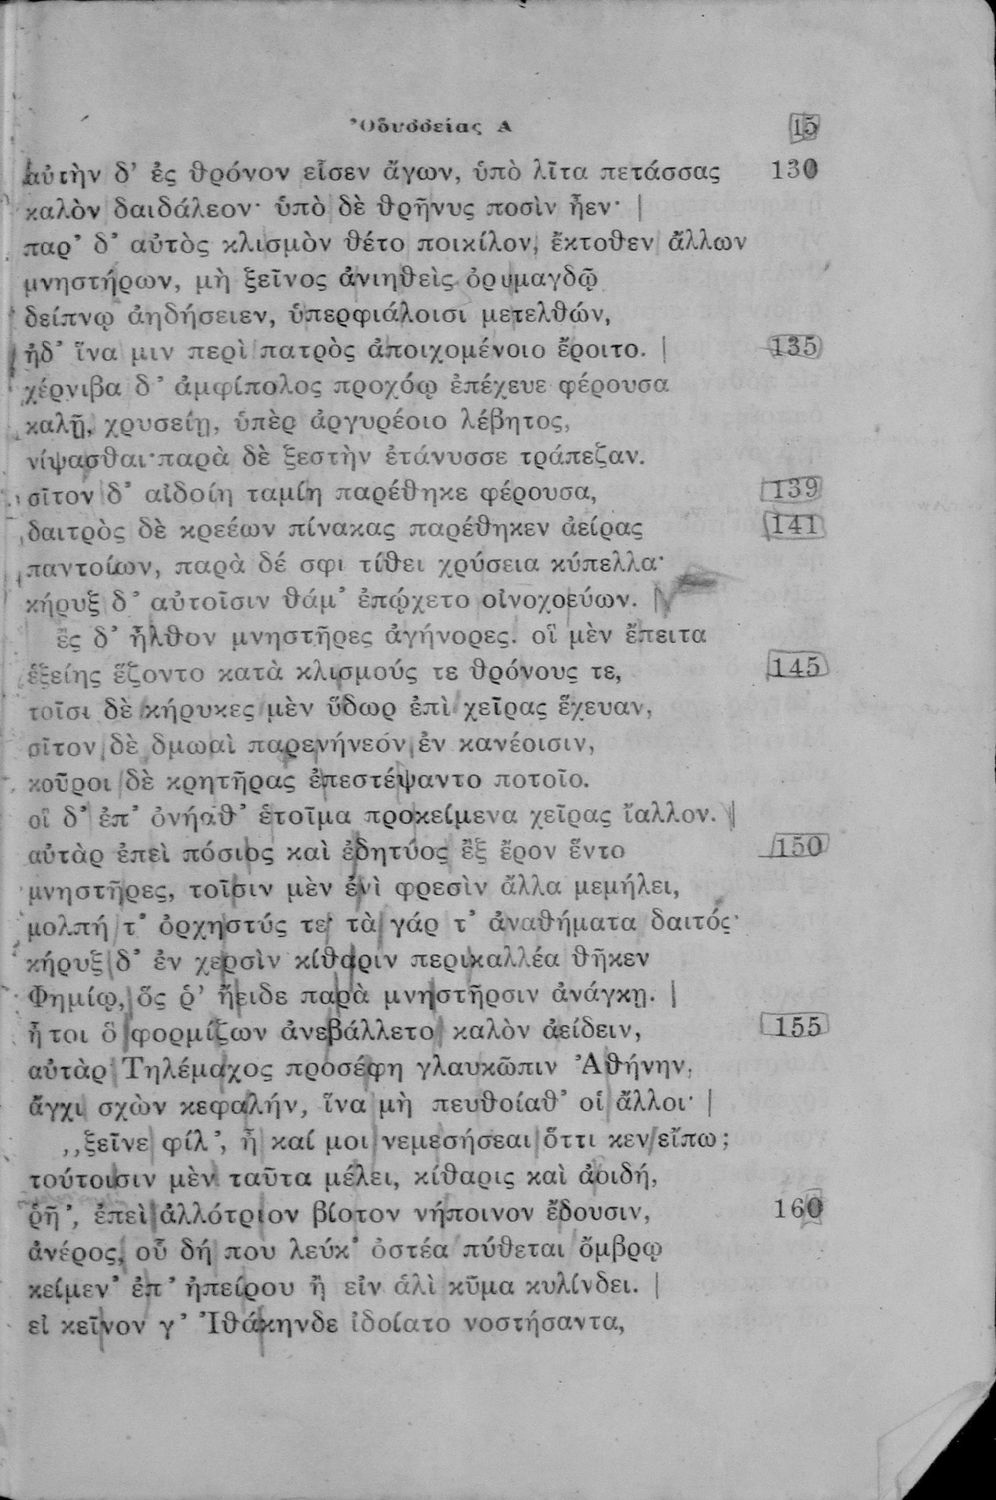 Ὀδυσσείας Α 15
αὐτὴν δ’ ἐς θρόνον εἷσεν ἄγων, ὑπὸ λῖτα πετάσσας 130
καλὸν δαιδάλεον· ὑπὸ δὲ θρῆνυς ποσὶν ἦεν·
παρ’ δ’ αὐτὸς κλισμὸν θέτο ποικίλον, ἔκτοθεν ἄλλων
μνηστήρων, μὴ ξεῖνος ἀνιηθεὶς ὀρυμαγδῷ
δείπνῳ ἀηδήσειεν, ὑπερφιάλοισι μετελθών,
ἠδ’ ἵνα μιν περὶ πατρὸς ἀποιχομένοιο ἔροιτο. 135
χέρνιβα δ’ ἀμφίπολος προχόῳ ἐπέχευε φέρουσα
καλῇ, χρυσείῃ, ὑπὲρ ἀργυρέοιο λέβητος,
νίψασθαι· παρὰ δὲ ξεστὴν ἐτάνυσσε τράπεζαν.
σῖτον δ’ αἰδοίη ταμίη παρέθηκε φέρουσα, 139
δαιτρὸς δὲ κρεέων πίνακας παρέθηκεν ἀείρας 141
παντοίων, παρὰ δέ σφι τίθει χρύσεια κύπελλα·
κήρυξ δ’ αὐτοῖσιν θάμ’ ἐπῴχετο οἰνοχοεύων.
ἒς δ’ ἦλθον μνηστῆρες ἀγήνορες. οἳ μὲν ἔπειτα
ἑξείης ἕζοντο κατὰ κλισμούς τε θρόνους τε, 145
τοῖσι δὲ κήρυκες μὲν ὕδωρ ἐπὶ χεῖρας ἔχευαν,
σῖτον δὲ δμωαὶ παρενήνεον ἐν κανέοισιν,
κοῦροι δὲ κρητῆρας ἐπεστέψαντο ποτοῖο.
οἳ δ’ ἐπ’ ὀνήαθ’ ἑτοῖμα προκείμενα χεῖρας ἴαλλον.
αὐτὰρ ἐπεὶ πόσιος καὶ ἐδητύος ἒξ ἔρον ἕντο 150
μνηστῆρες, τοῖσιν μὲν ἐνὶ φρεσὶν ἄλλα μεμήλει,
μολπή τ’ ὀρχηστύς τε· τὰ γάρ τ’ ἀναθήματα δαιτός·
κήρυξ δ’ ἐν χερσὶν κίθαριν περικαλλέα θῆκεν
Φημίῳ, ὅς ῥ’ ἤειδε παρὰ μνηστῆρσιν ἀνάγκῃ.
ἦ τοι ὃ φορμίζων ἀνεβάλλετο καλὸν ἀείδειν, 155
αὐτὰρ Τηλέμαχος προσέφη γλαυκῶπιν Ἀθήνην,
ἄγχι σχὼν κεφαλήν, ἵνα μὴ πευθοίαθ’ οἱ ἄλλοι·
„ξεῖνε φίλ’, ἦ καί μοι νεμεσήσεαι ὅττι κεν εἴπω;
τούτοισιν μὲν ταῦτα μέλει, κίθαρις καὶ ἀοιδή,
ῥῆ’, ἐπεὶ ἀλλότριον βίοτον νήποινον ἔδουσιν, 160
ἀνέρος, οὗ δή που λεύκ’ ὀστέα πύθεται ὄμβρῳ
κείμεν’ ἐπ’ ἠπείρου ἢ εἰν ἁλὶ κῦμα κυλίνδει.
εἰ κεῖνον γ’ Ἰθάκηνδε ἰδοίατο νοστήσαντα,